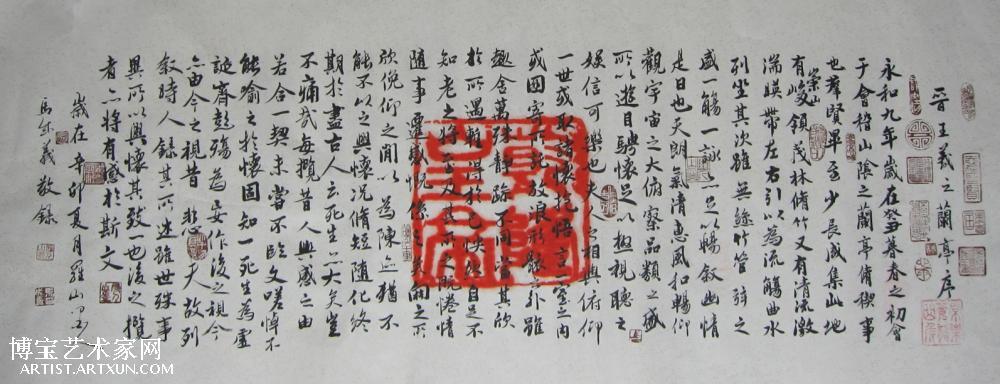 晋王羲之蘭亭序
永和九年歲在癸丑暮春之初會
于會稽山陰之蘭亭脩禊事
也羣賢畢至少長咸集此地
有崇山峻領茂林脩竹又有清流激
湍暎帶左右引以為流觴曲水
列坐其次雖無絲竹管弦之
盛一觴一詠亦足以暢叙幽情
是日也天朗氣清惠風和暢仰
觀宇宙之大俯察品類之盛
所以遊目騁懷足以極視聽之
娛信可樂也夫人之相與俯仰
一世或取諸懷抱悟言一室之內
或因寄所託放浪形骸之外雖
趣舍萬殊靜躁不同當其欣
於所遇暫得於己快然自足不
知老之將至及其所之既惓情
隨事遷感慨係之矣向之所
欣俛仰之閒以為陳迹猶不
能不以之興懷況脩短隨化終
期於盡古人云死生亦大矣豈
不痛哉每攬昔人興感之由
若合一契未嘗不臨文嗟悼不
能喻之於懷固知一死生為虛
誕齊彭殤為妄作後之視今
亦由今之視昔悲夫故列
叙時人錄其所述雖世殊事
異所以興懷其致一也後之攬
者亦將有感於斯文
歲在辛卯夏月羅山
義敬錄
博宝艺术家网
ARTIST.ARTXUN.COM